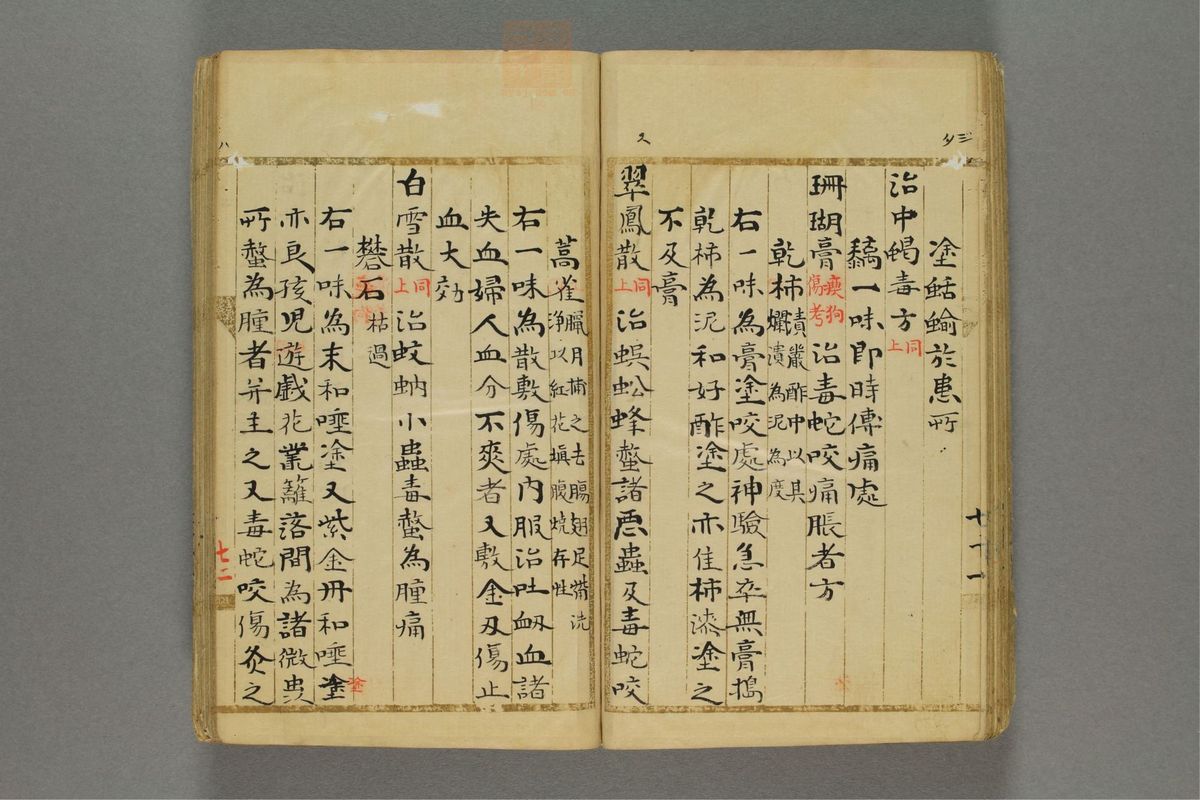 塗蛞蝓於患所
治中蝎毒方同上
䵑一味即時傅痛處
珊瑚膏瘈狗傷考治毒蛇咬痛脹者方
乾柿漬嚴酢中以具爛潰為泥為度
右一味為膏塗咬處神驗急卒無膏搗
乾柿為泥和好酢塗之亦佳柿漆塗之
不及膏
翠鳳散同上治蜈蚣蜂螫諸惡蟲及毒蛇咬
蒿雀臘月捕之去腸翅足觜洗淨以紅花填腹燒存性
右一味為散敷傷處內服治吐衂血諸
失血婦人血分不爽者又敷金刃傷止
血大効
白雪散同上治蚊蚋小蟲毒螫為腫痛
礬石枯過
右一味為末和唾塗又紫金丹和唾塗
塗
亦良孩兒遊戲花叢籬落間為諸微蟲
所螫為腫者并主之又毒蛇咬傷灸之
七十一
七二